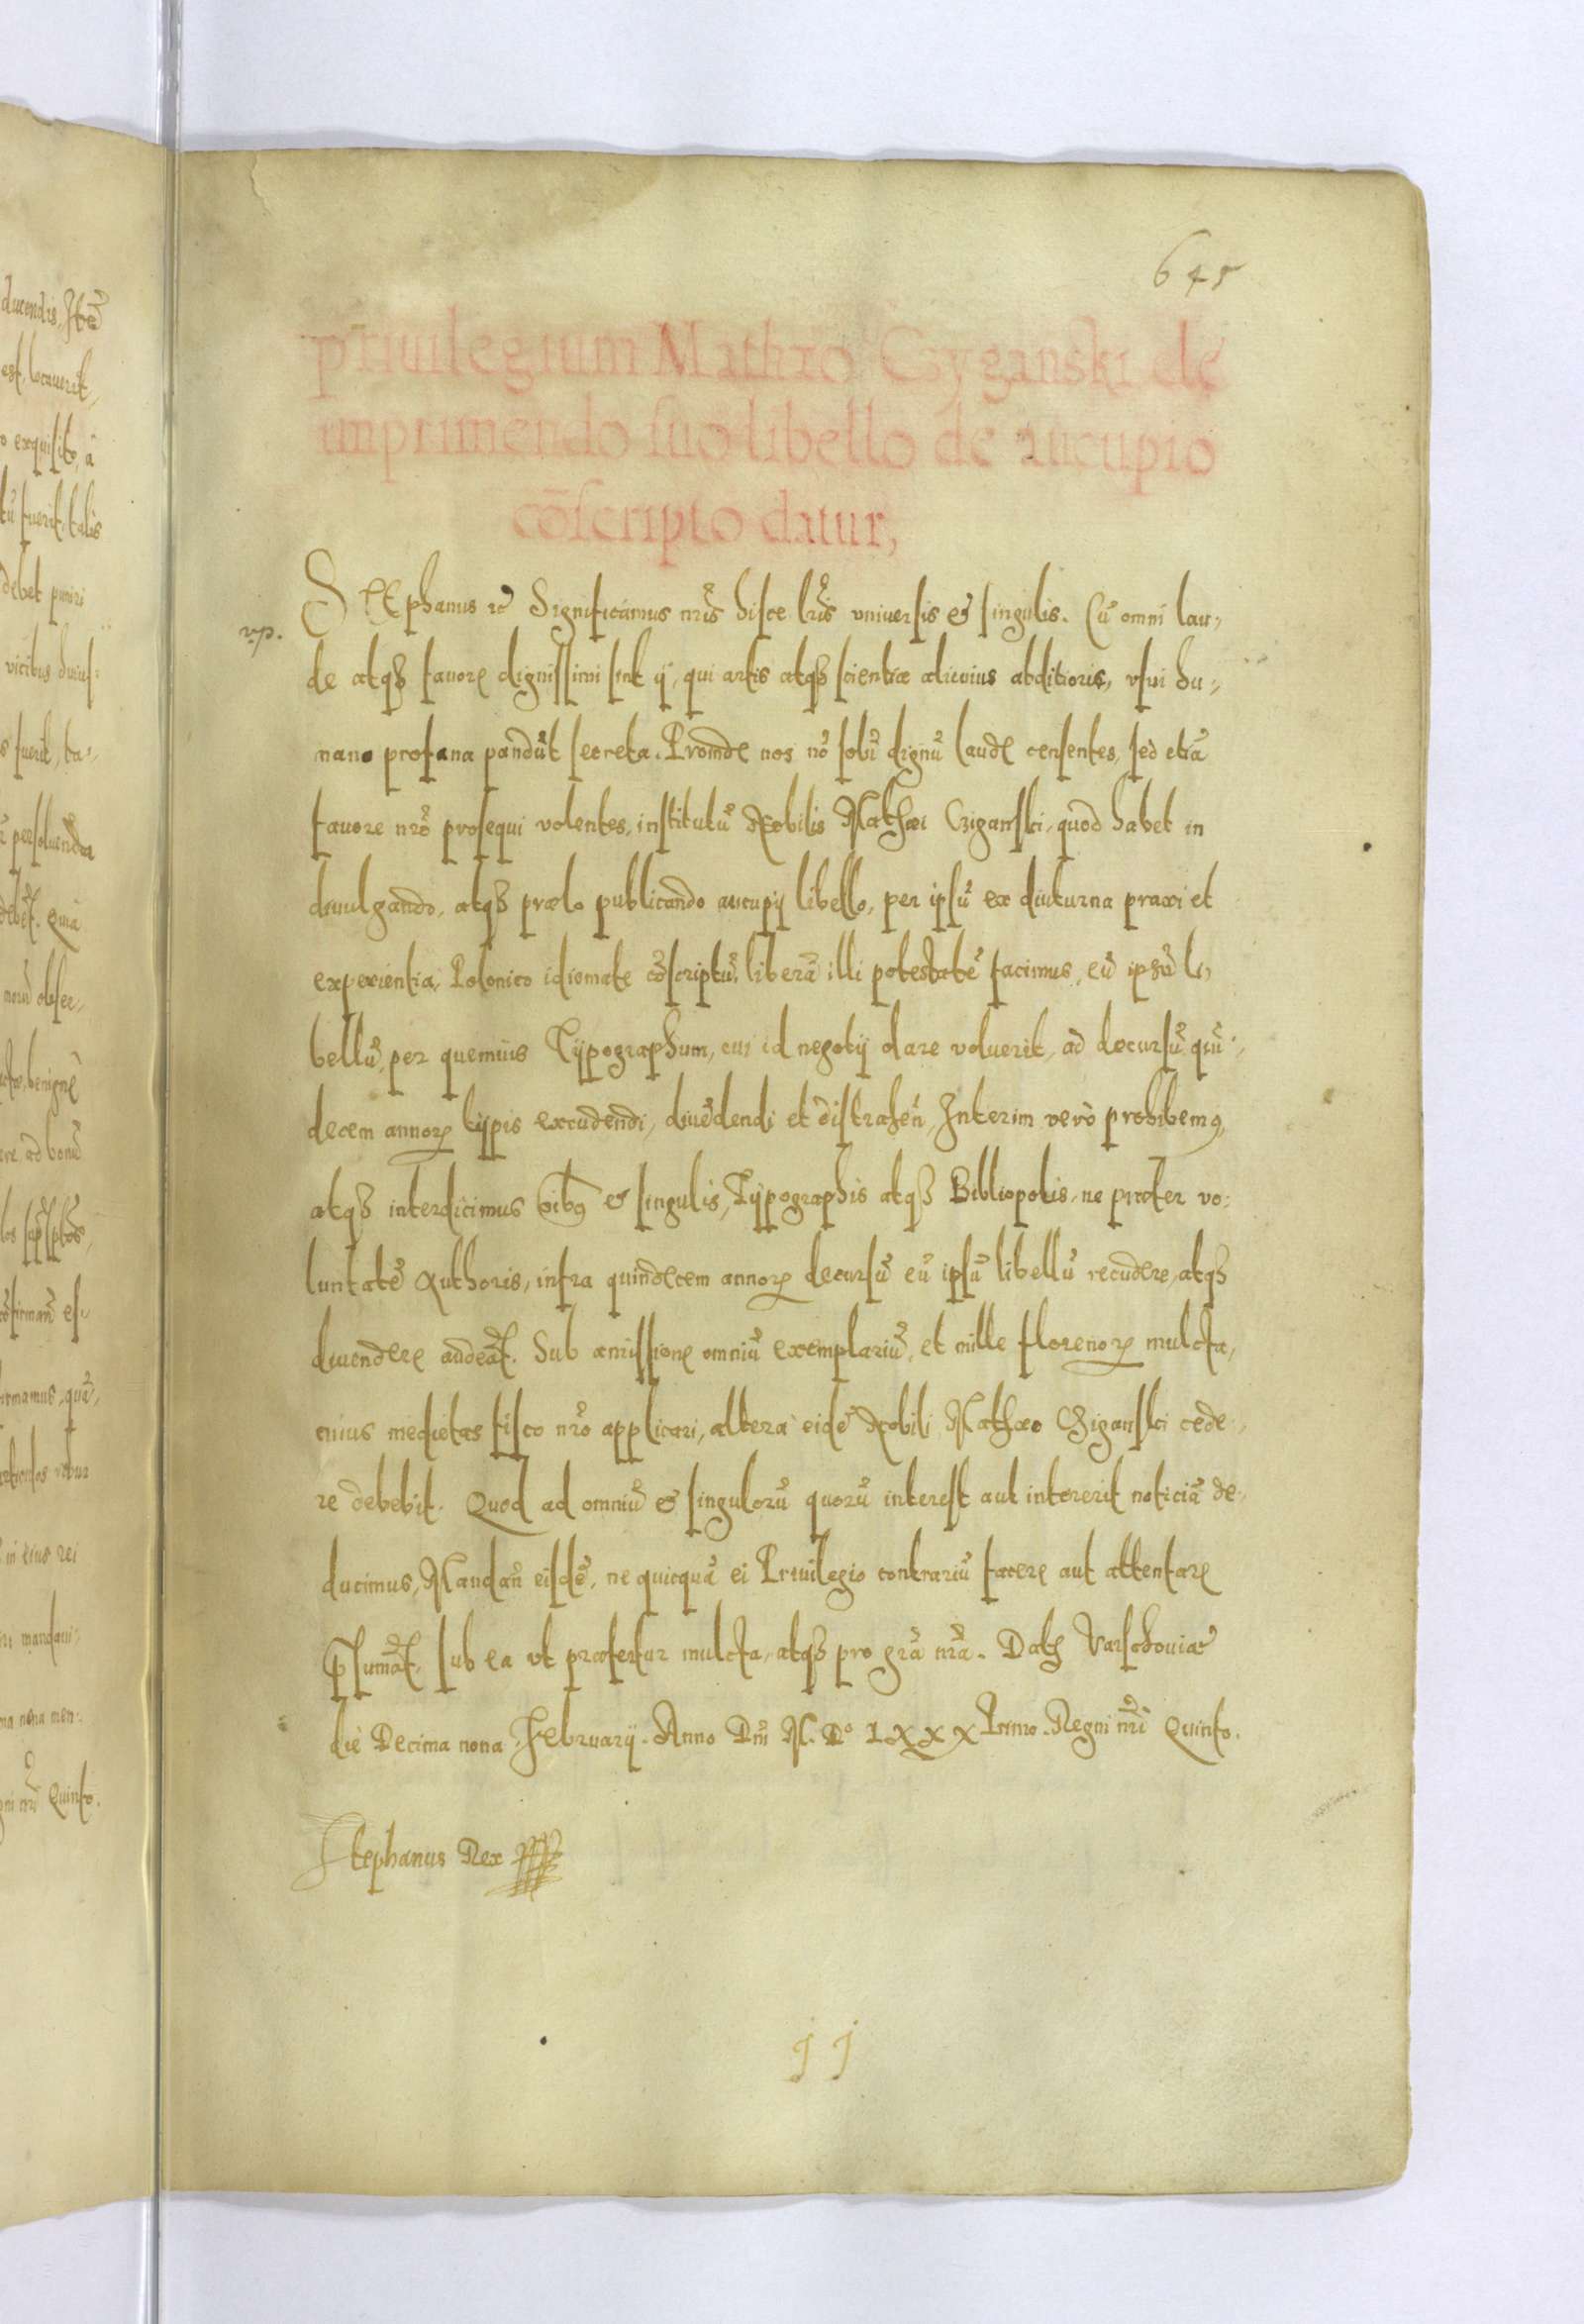 645
privilegium Mathæo Czyganski de
imprimendo suo libello de aucupio
cōscripto datur,
vp.
Stephanus rc Significamus nr̄is hisce lr̄is vniversis et singulis. Cū omni lau,
de atqȝ favore dignissimi sint ij, qui artis atqȝ scientiæ alicuius abditioris, vsui hu,,
mano profana pandūt secreta. Proinde nos nō solū dignū laude censentes, sed etiā
favore nr̄o prosequi volentes, institutū Nobilis Mathæi Cziganski, quod habet in
divulgando, atqȝ prælo publicando aucupij libello, per ipsū ex diuturna praxi et
experientia, Polonico idiomate cōscriptū, liberā illi potestatē facimus, eū ipsū li,
bellū, per quemuis Typographum, cui id negotij dare voluerit, ad decursū quī,
decem annorꝝ typis excudendi, divēdendi et distrahen̄, Interim verò prohibemꝯ,
atqȝ interdicimus oībꝯ et singulis, Typographis atqȝ Bibliopolis, ne præter vo:
luntatē Authoris, infra quindecem annorꝝ decursū eū ipsū libellū recudere, atqȝ
divendere audeāt. Sub amissione omniū exemplariū, et mille florenorꝝ mulcta,
cuius medietas fisco nr̄o applicari, altera eidē Nobili Mathæo Cziganski cede,
re debebit. Quod ad omniū et singulorū quorū interest aut intererit noticiā de,
ducimus, Mandan̄ eisdē, ne quicquā ei Privilegio contrariū facere aut attentare
p̄sumāt, sub ea vt præfertur mulcta, atqȝ pro grā nr̄a. Datȝ Varschoviæ
die Decima nona Februarij. Anno Dn̄i M. D° LXXX Primo. Regni nr̄i Quinto.
Stephanus Rex
jj